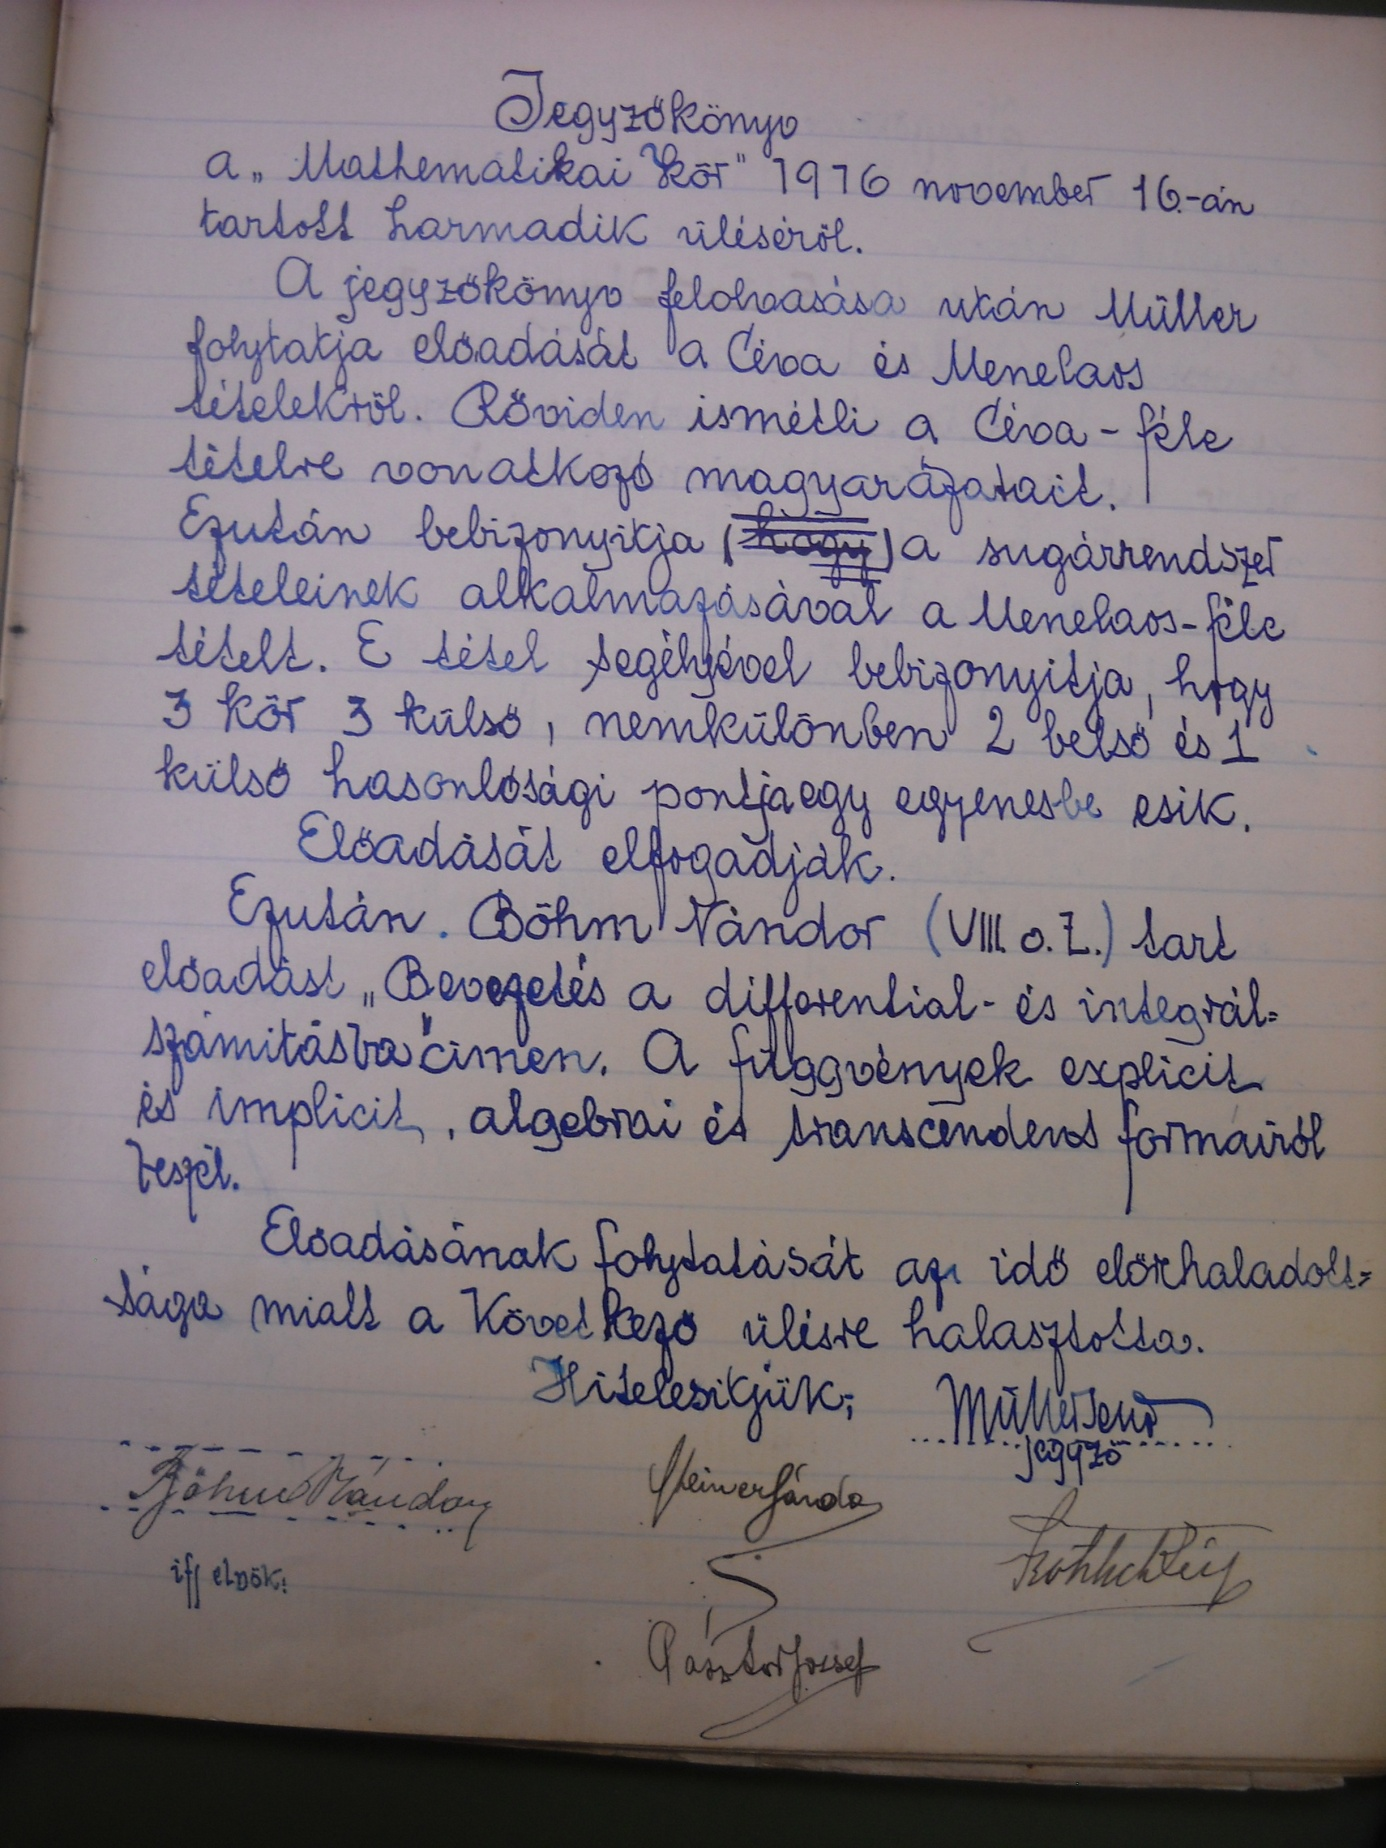 Jegyzőkönyv
a „Mathematikai Kör" 1916 november 16.-án
tartott harmadik üléséről.
A jegyzőkönyv felolvasása után Müller
folytatja előadását a Céva és Menelaos
tételekről. Röviden ismétli a Céva-féle
tételre vonatkozó magyarázatait.
Ezután bebizonyitja (hogy) a sugárrendszer
tételeinek alkalmazásával a Menelaos-féle
tételt. E tétel segélyével bebizonyitja, hogy
3 kör 3 külső, nemkülönben 2 belső és 1
külső hasonlósági pontja egy egyenesbe esik.
Előadását elfogadják.
Ezután. Böhm Nándor (VIII. o. Z.) tart
előadást „Bevezetés a differential- és integrál=
számitásba" cimen. A függvények explicit
és implicit, algebrai és transcendens formáiról
beszél.
Előadásának folytatását az idő előrehaladott=
sága miatt a következő ülésre halasztotta.
Hitelesitjük;
Müller Jenő
jegyző
Böhm Nándor
ifj elnök.
Pásztor József